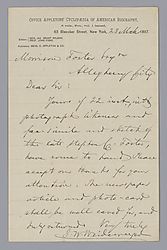 OFFICE APPLETONS' CYCLOPÆDIA OF AMERICAN BIOGRAPHY,
63 Bleecker Street, New York, 23 Mch 1887
Morrison Foster Esqr
Allegheny City
Dear Sir:
Yours of 21st inst, with
photograph likeness and
fac-simile and sketch of
the late Stephen C. Foster,
have come to hand. Please
accept our thanks for your
attention. The newspaper
article and photo-card
shall be well cared for, and
duly returned. Yours truly